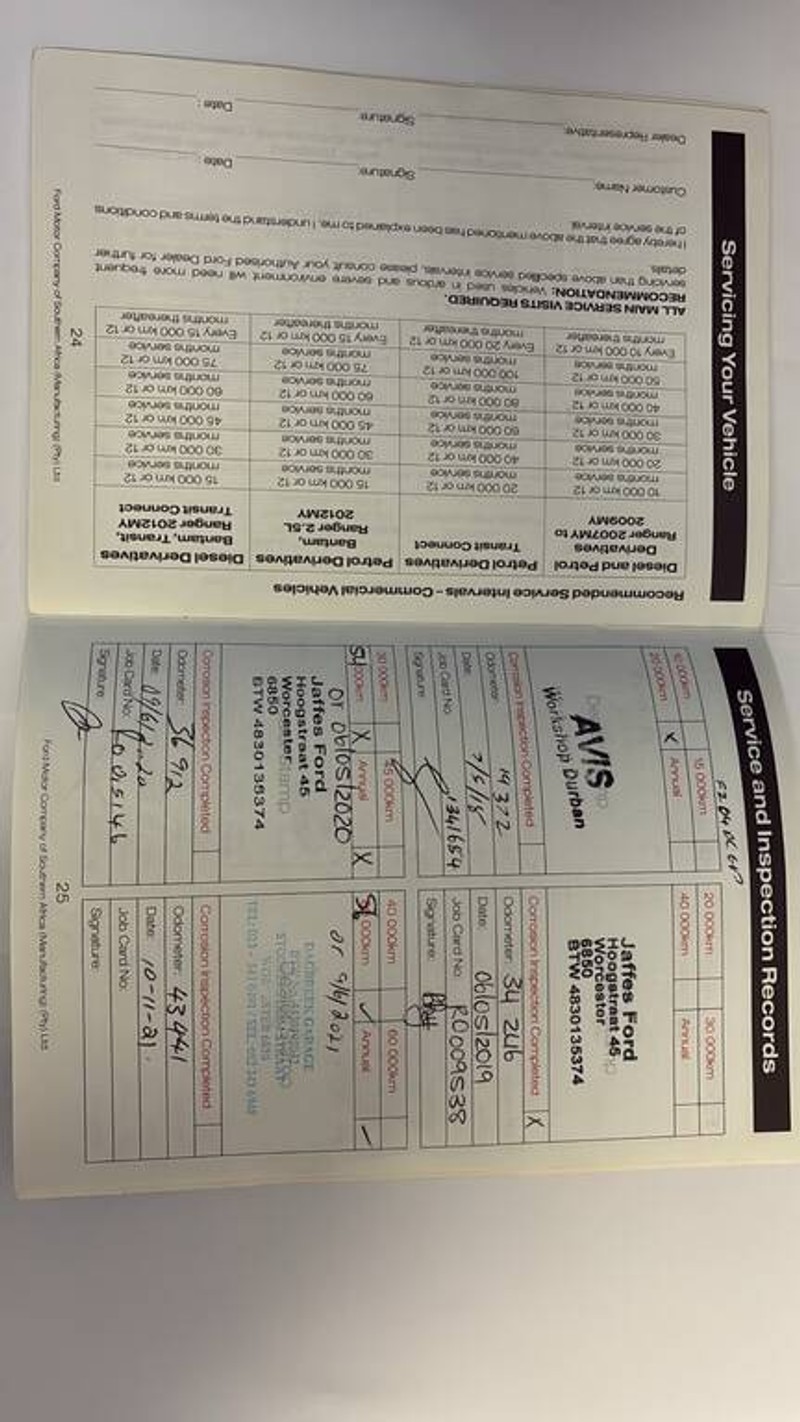 Servicing Your Vehicle
Recommended Service Intervals – Commercial Vehicles
Diesel and Petrol Derivatives Ranger 2007MY to 2009MY
Petrol Derivatives Transit Connect
Petrol Derivatives Bantam, Ranger 2.5L 2012MY
Diesel Derivatives Bantam, Transit, Ranger 2012MY Transit Connect
10 000 km or 12 months service
20 000 km or 12 months service
15 000 km or 12 months service
15 000 km or 12 months service
20 000 km or 12 months service
40 000 km or 12 months service
30 000 km or 12 months service
30 000 km or 12 months service
30 000 km or 12 months service
60 000 km or 12 months service
45 000 km or 12 months service
45 000 km or 12 months service
40 000 km or 12 months service
80 000 km or 12 months service
60 000 km or 12 months service
60 000 km or 12 months service
50 000 km or 12 months service
100 000 km or 12 months service
75 000 km or 12 months service
75 000 km or 12 months service
Every 10 000 km or 12 months thereafter
Every 20 000 km or 12 months thereafter
Every 15 000 km or 12 months thereafter
Every 15 000 km or 12 months thereafter
ALL MAIN SERVICE VISITS REQUIRED.
RECOMMENDATION: Vehicles used in arduous and severe environment will need more frequent
servicing than above specified service intervals, please consult your Authorised Ford Dealer for further
details
I hereby agree that the above mentioned has been explained to me, I understand the terms and conditions
of the service interval
Customer Name:
Signature:
Date :
Dealer Representative:
Signature:
Date :
24
Ford Motor Company of Southern Africa (Manufacturing) (Pty) Ltd
Service and Inspection Records
10 000km
15 000km
20 000km
X
Annual
AVIS
Workshop Durban
Corrosion Inspection Completed
Odometer: 19 372
Date: 7/5/18
Job Card No: 1341654
Signature:
20 000km
30 000km
40 000km
Annual
Jaffes Ford
Hoogstraat 45
Worcester
6850
BTW 4830135374
Corrosion Inspection Completed
X
Odometer: 34 246
Date: 06/05/2019
Job Card No: R0009538
Signature:
30 000km
45 000km
X
Annual
X
or 06/05/2020
Jaffes Ford
Hoogstraat 45
Worcester
6850
BTW 4830135374
Corrosion Inspection Completed
Odometer: 36 912
Date:
Job Card No:
Signature:
40 000km
60 000km
Annual
or 9/6/2021
Corrosion Inspection Completed
Odometer: 43 941
Date: 10-11-21
Job Card No:
Signature:
25
Ford Motor Company of Southern Africa (Manufacturing) (Pty) Ltd